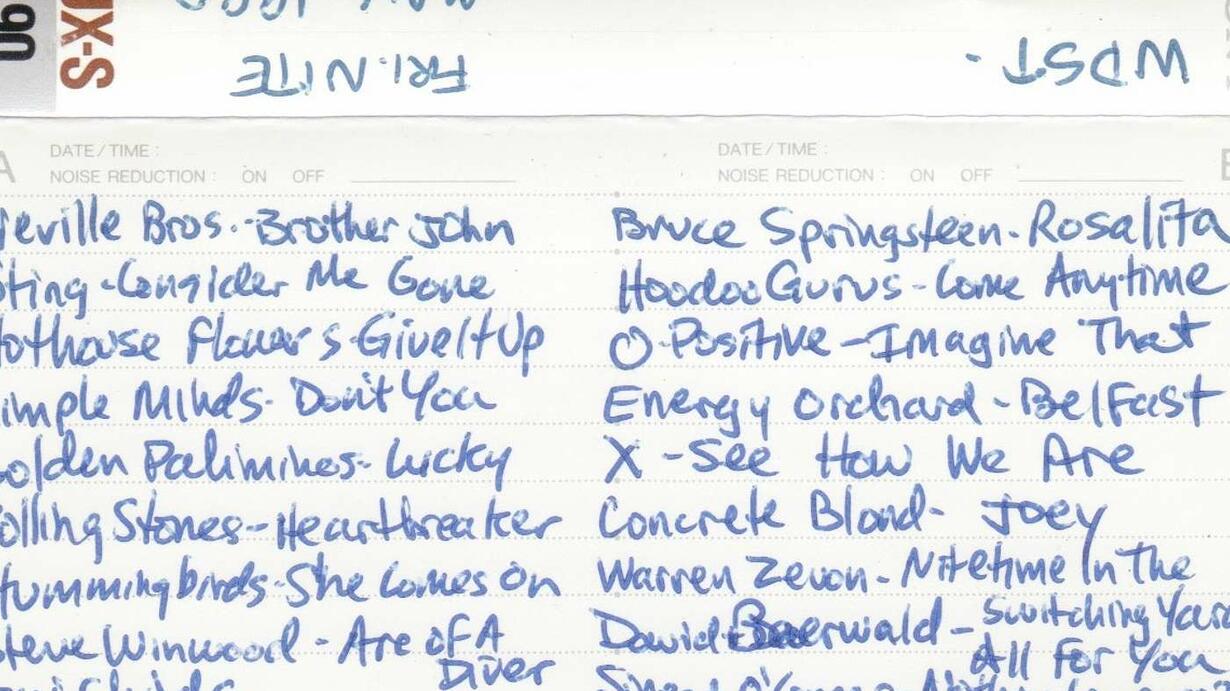 UX-S
90
FRI. NITE
WDST -
A
DATE/TIME :
NOISE REDUCTION : ON OFF
eville Bros. - Brother John
ting - Consider Me Gone
othouse Flowers - Give It Up
imple Minds - Don't You
olden Palimines - Lucky
olling Stones - Heartbreaker
ummingbirds - She Comes On
teve Winwood - Arc of A
Diver
DATE/TIME :
NOISE REDUCTION : ON OFF
Bruce Springsteen - Rosalita
Hoodoo Gurus - Come Anytime
O Positive - Imagine That
Energy Orchard - Belfast
X - See How We Are
Concrete Blond - Joey
Warren Zevon - Nitetime In The
Switching Yard
David Baerwald - All For You